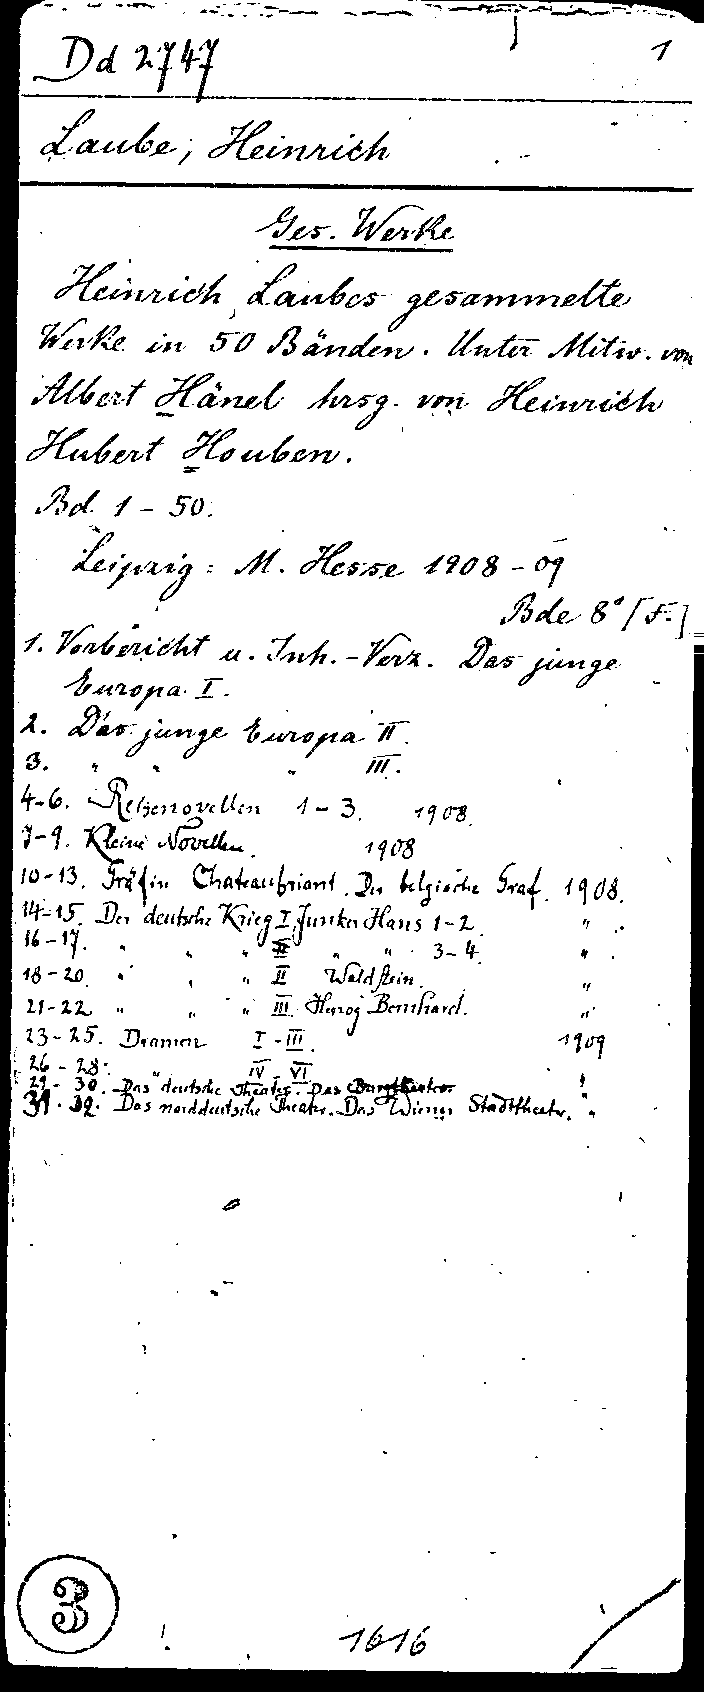 Dd 2747 1
Laube, Heinrich
Ges. Werke
Heinrich Laubes gesammelte
Werke in 50 Bänden. Unter Mitw. von
Albert Hänel hrsg. von Heinrich
Hubert Houben.
Bd. 1 - 50.
Leipzig: M. Hesse 1908 - 09
Bde 8° [F.]
1. Vorbericht u. Inh.-Verz. Das junge
Europa I.
2. Das junge Europa II.
3. " " " III.
4-6. Reisenovellen 1-3. 1908.
7-9. Kleine Novellen. 1908
10-13. Gräfin Chateaubriant. Der belgische Graf. 1908.
14-15. Der deutsche Krieg I, Junker Hans 1-2. "
16-17. " " " II " " 3-4. "
18-20. " " " II Waldstein. "
21-22 " " " III Herzog Bernhard. "
23-25. Dramen I - III. 1909
26 - 28. " IV - VI "
29- 30. Das deutsche Theater. Das Burgtheater.
31. 32. Das norddeutsche Theater. Das Wiener Stadttheater. "
3
1616